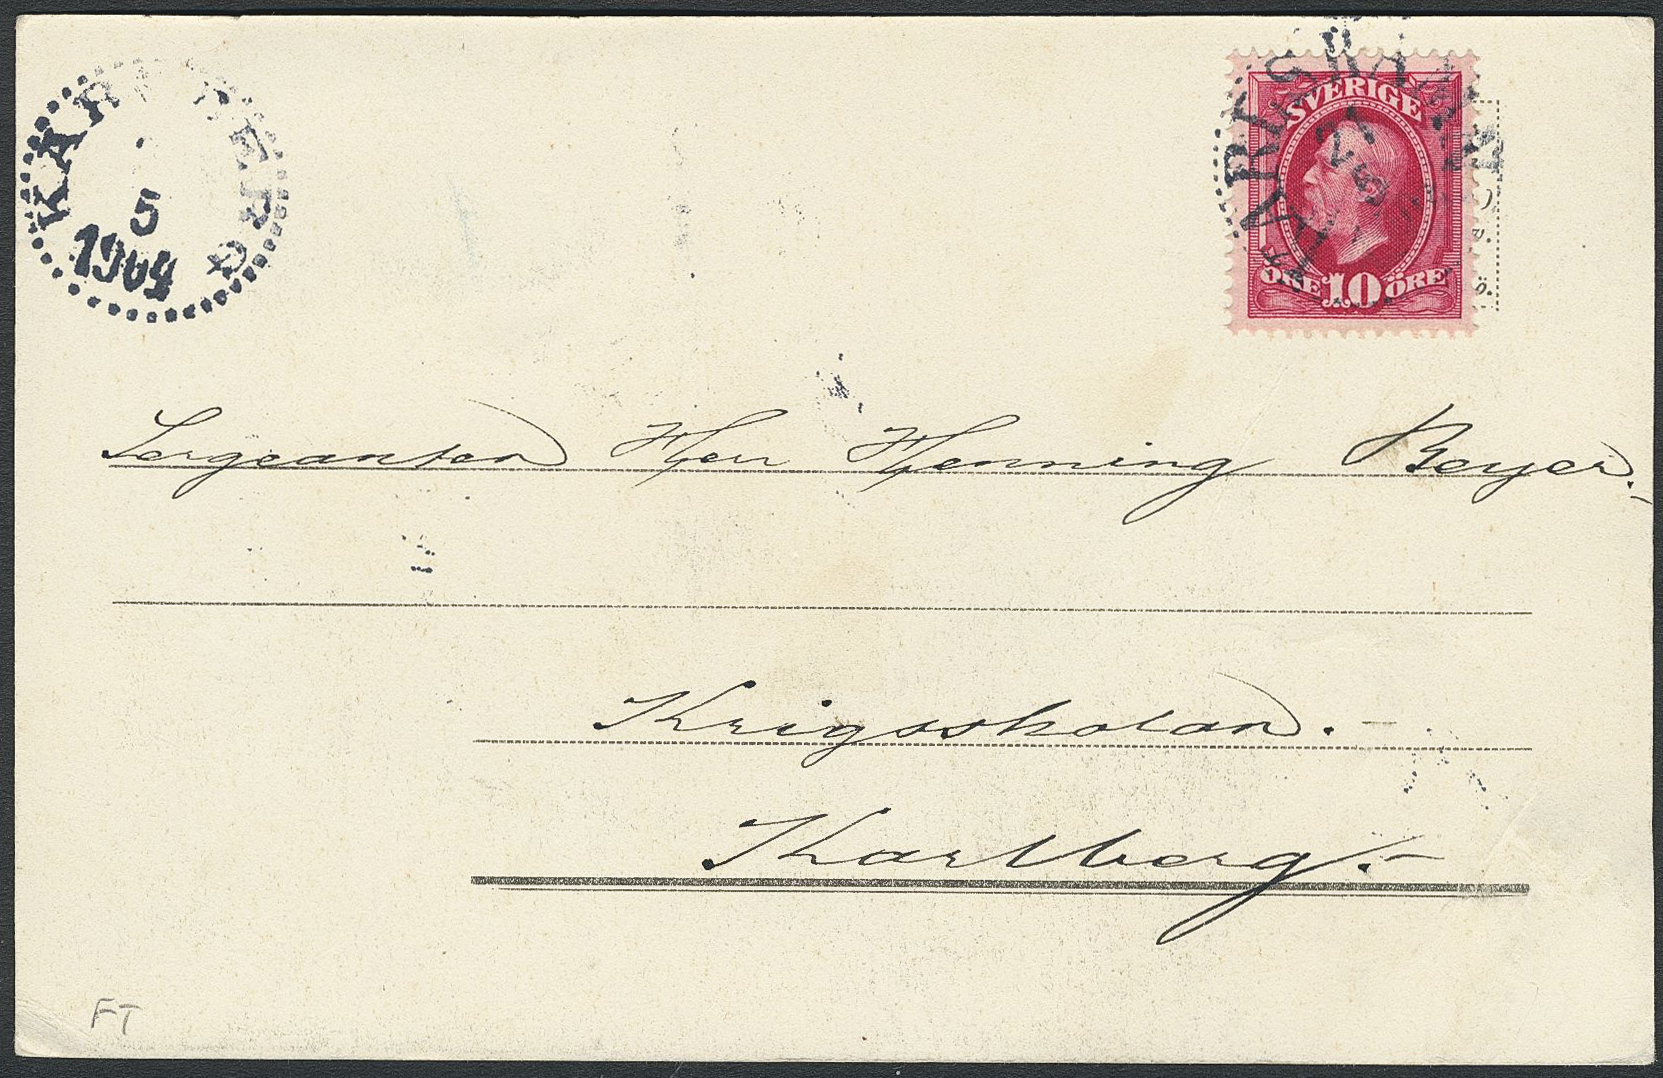 5
1904
SVERIGE
ÖRE 10 ÖRE
Sergeanten Herr Henning Beyer.-
Krigsskolan.-
Karlberg.-
FT